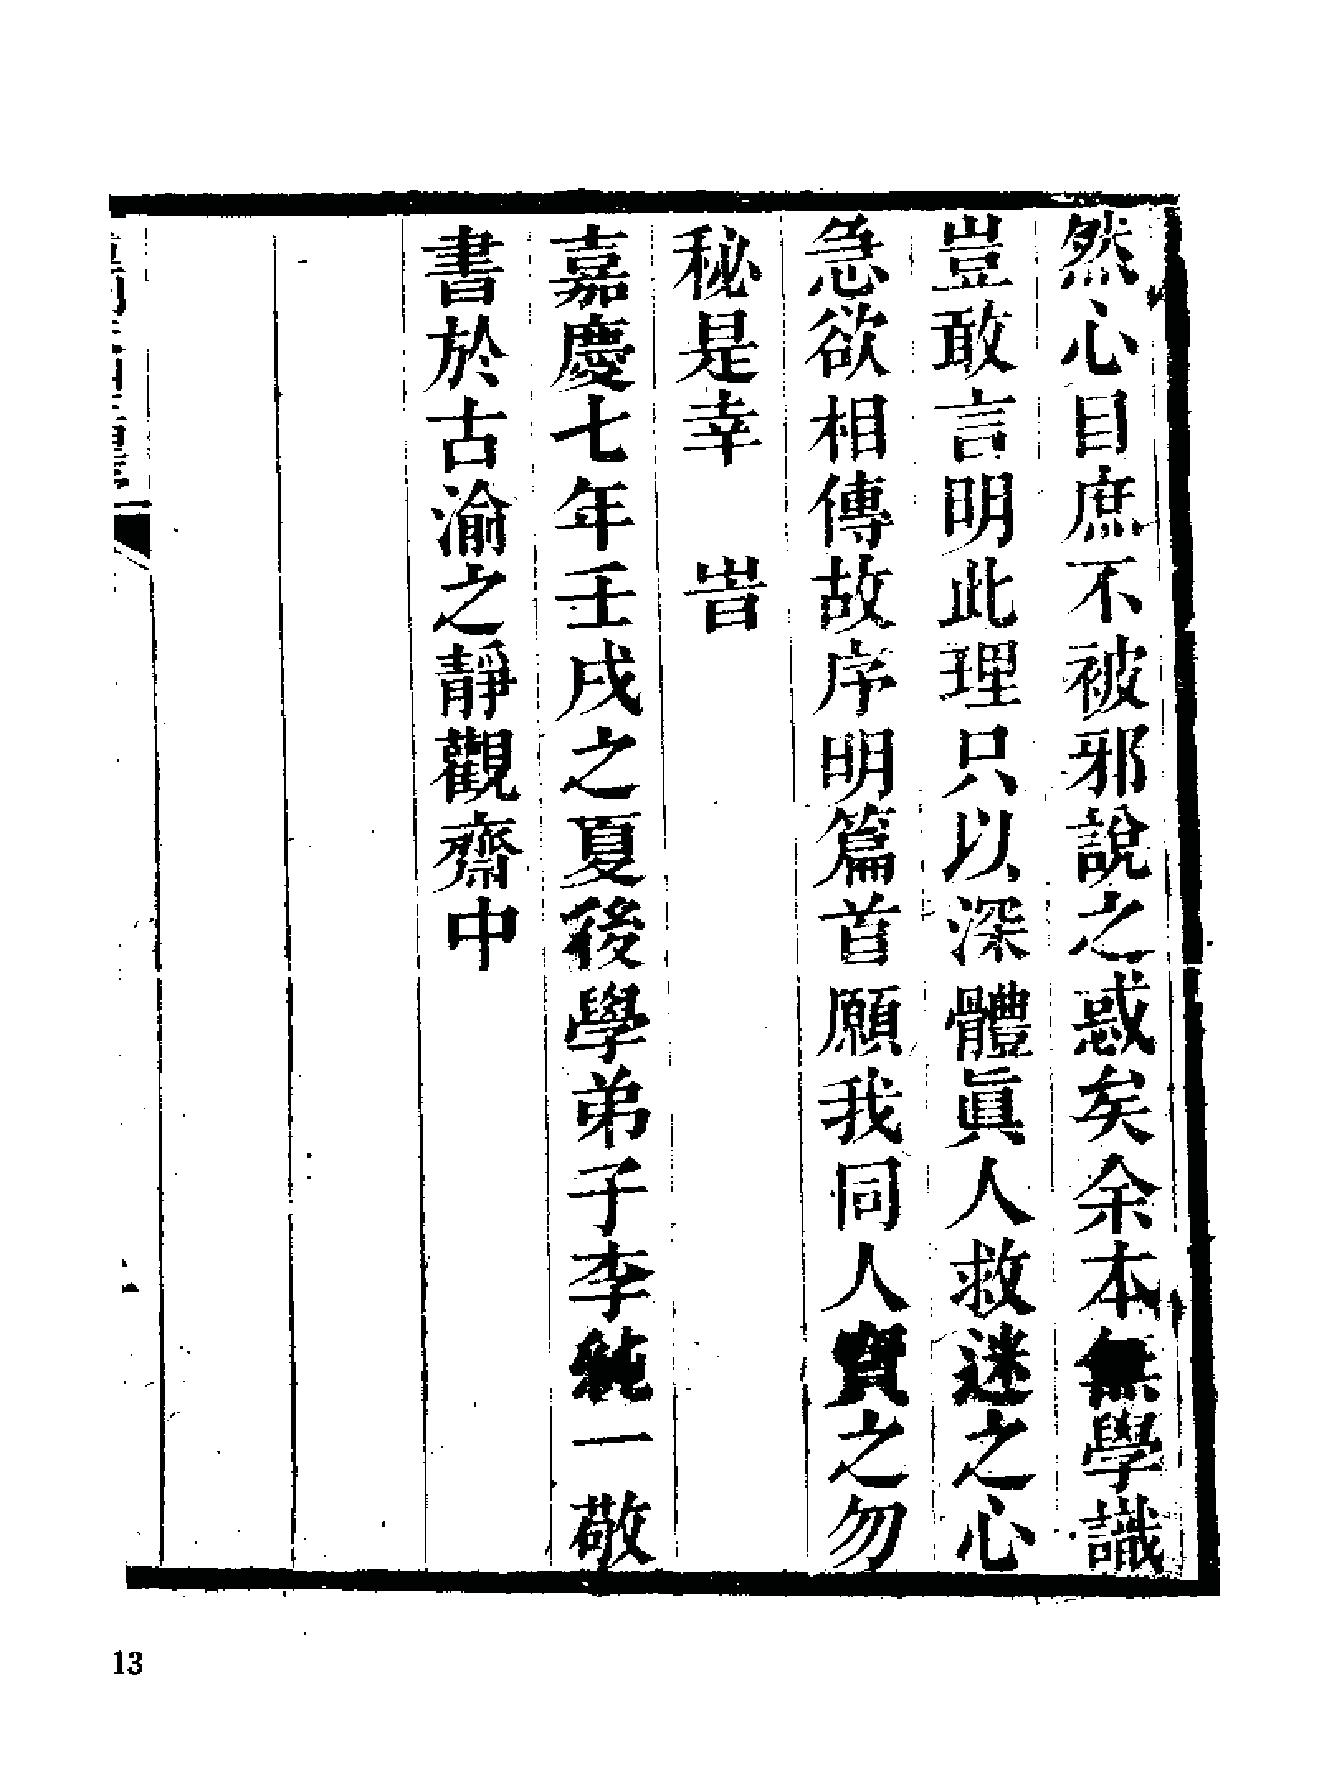 然心目庶不被邪說之惑矣余本無學識
豈敢言明此理只以深體眞人救迷之心
急欲相傳故序明篇首願我同人寶之勿
秘是幸　旹
嘉慶七年壬戌之夏後學弟子李純一敬
書於古渝之靜觀齋中
13